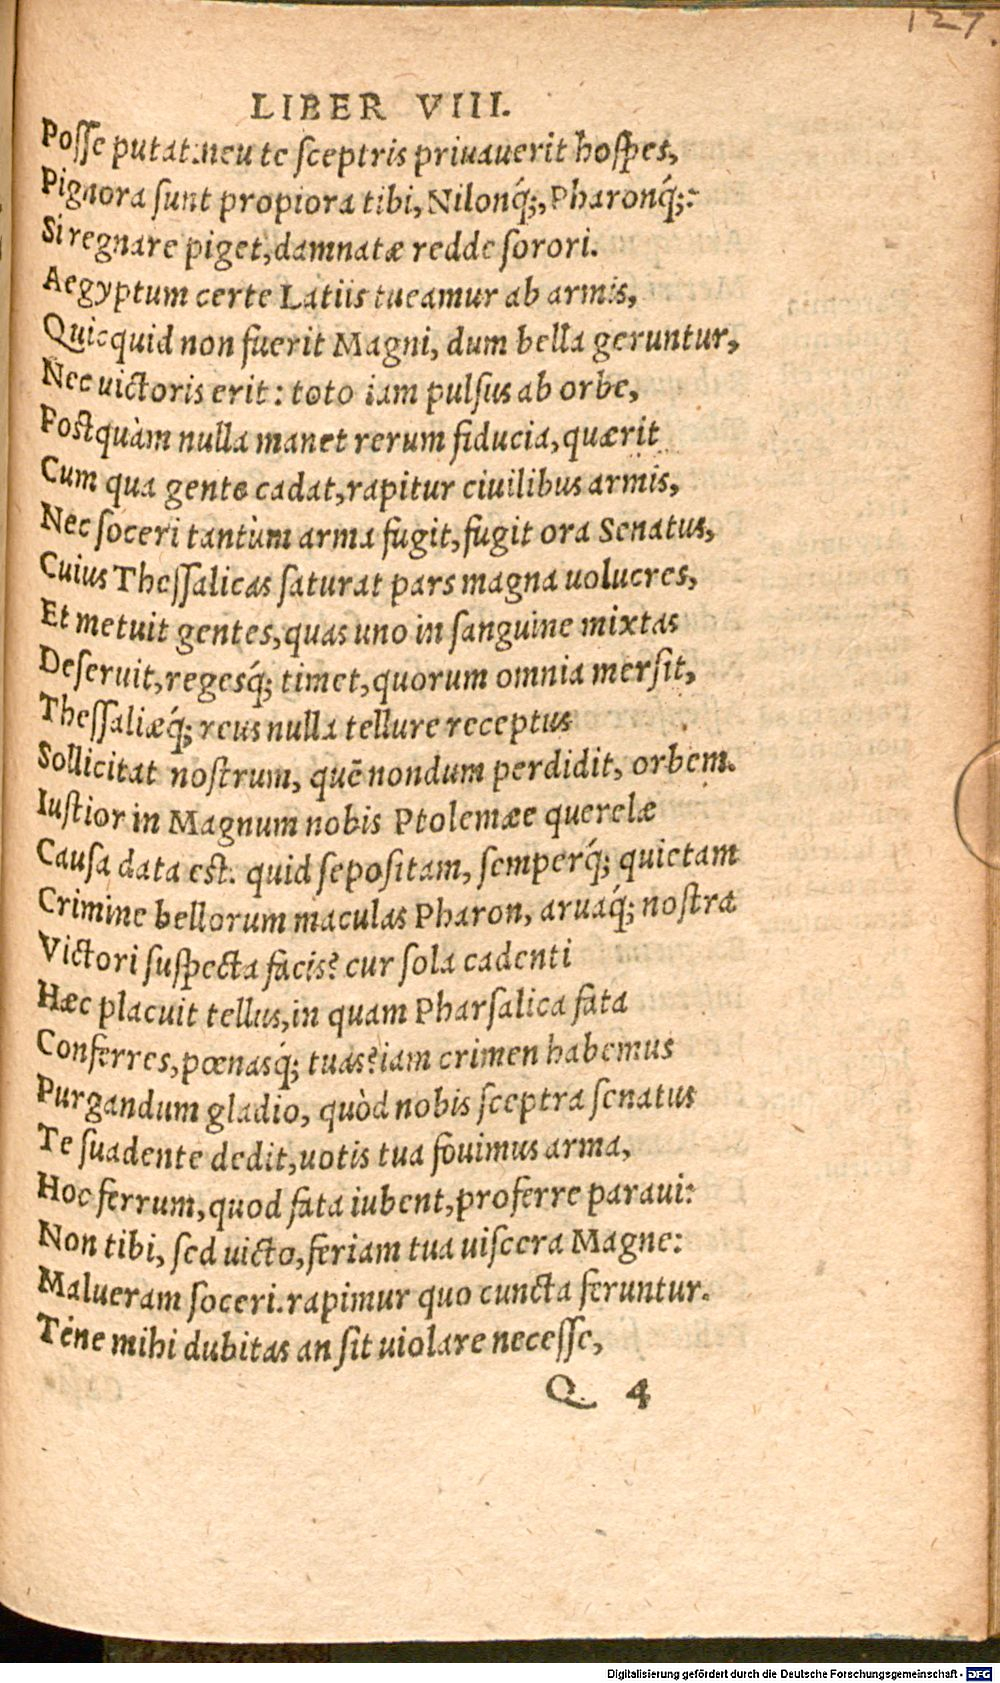 127.
LIBER VIII.
Posse putat: neu te sceptris priuauerit hospes,
Pignora sunt propiora tibi, Nilonq́;, Pharonq́;:
Si regnare piget, damnatæ redde sorori.
Aegyptum certe Latiis tueamur ab armis,
Quicquid non fuerit Magni, dum bella geruntur,
Nec uictoris erit: toto iam pulsus ab orbe,
Postquàm nulla manet rerum fiducia, quærit
Cum qua gente cadat, rapitur ciuilibus armis,
Nec soceri tantùm arma fugit, fugit ora Senatus,
Cuius Thessalicas saturat pars magna uolucres,
Et metuit gentes, quas uno in sanguine mixtas
Deseruit, regesq́; timet, quorum omnia mersit,
Thessaliæq́; reus nulla tellure receptus
Sollicitat nostrum, quē nondum perdidit, orbem.
Iustior in Magnum nobis Ptolemæe querelæ
Causa data est. quid sepositam, semperq́; quietam
Crimine bellorum maculas Pharon, aruaq́; nostra
Victori suspecta facis? cur sola cadenti
Hæc placuit tellus, in quam Pharsalica fata
Conferres, pœnasq́; tuas? iam crimen habemus
Purgandum gladio, quòd nobis sceptra senatus
Te suadente dedit, uotis tua fouimus arma,
Hoc ferrum, quod fata iubent, proferre paraui:
Non tibi, sed uicto, feriam tua uiscera Magne:
Malueram soceri. rapimur quo cuncta feruntur.
Téne mihi dubitas an sit uiolare necesse,
Q 4
Digitalisierung gefördert durch die Deutsche Forschungsgemeinschaft - DFG